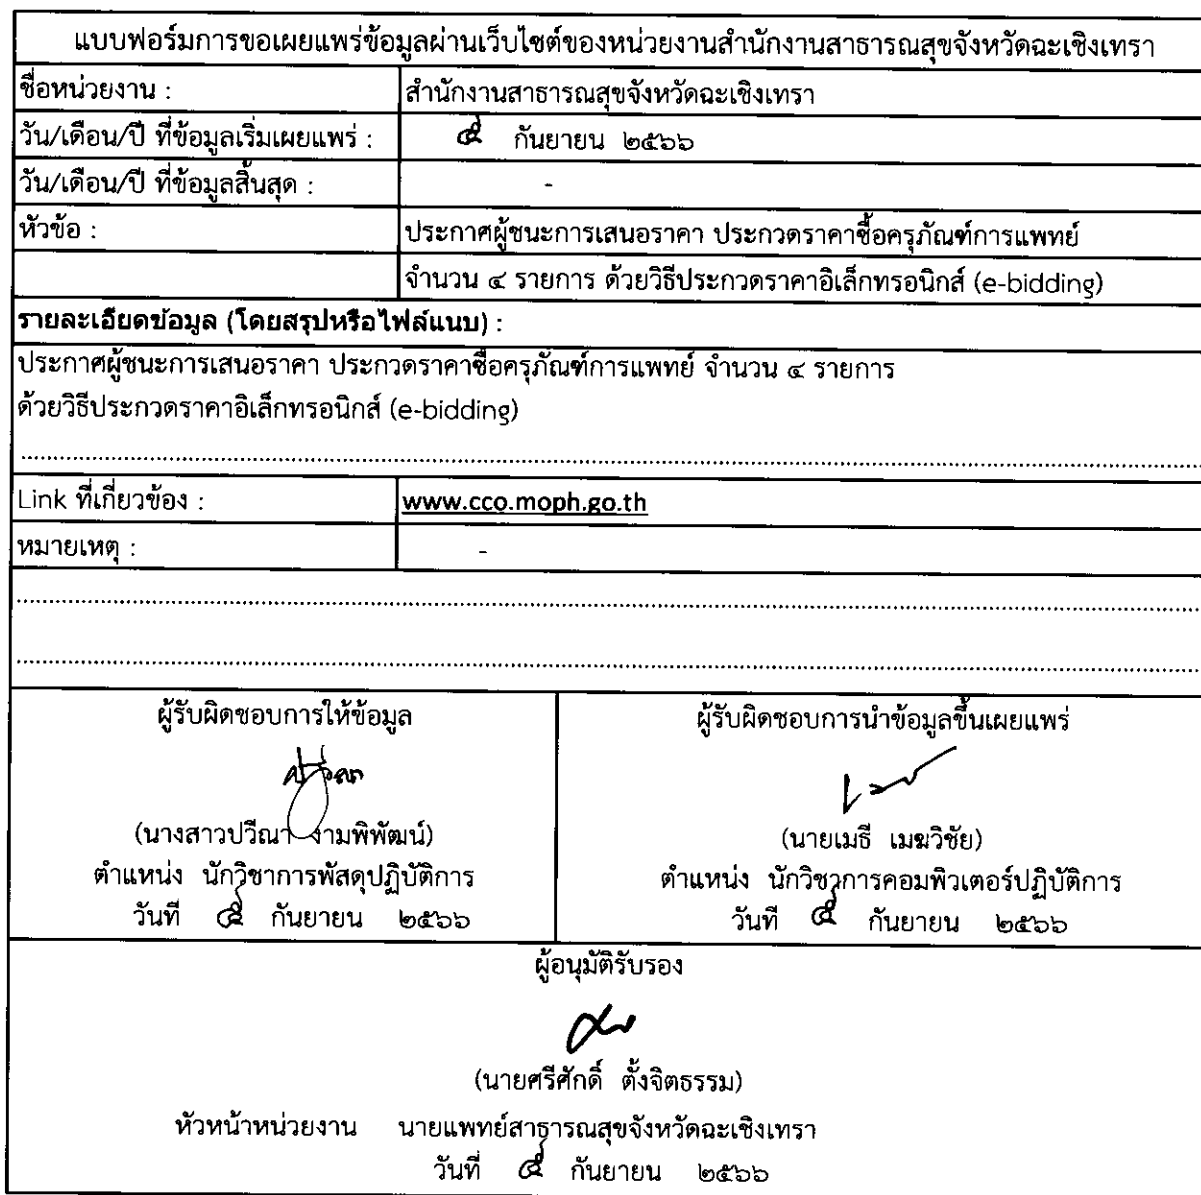 แบบฟอร์มการขอเผยแพร่ข้อมูลผ่านเว็บไซต์ของหน่วยงานสำนักงานสาธารณสุขจังหวัดฉะเชิงเทรา
ชื่อหน่วยงาน : สำนักงานสาธารณสุขจังหวัดฉะเชิงเทรา
วัน/เดือน/ปี ที่ข้อมูลเริ่มเผยแพร่ : ๕ กันยายน ๒๕๖๖
วัน/เดือน/ปี ที่ข้อมูลสิ้นสุด : -
หัวข้อ : ประกาศผู้ชนะการเสนอราคา ประกวดราคาซื้อครุภัณฑ์การแพทย์
จำนวน ๔ รายการ ด้วยวิธีประกวดราคาอิเล็กทรอนิกส์ (e-bidding)
รายละเอียดข้อมูล (โดยสรุปหรือไฟล์แนบ) :
ประกาศผู้ชนะการเสนอราคา ประกวดราคาซื้อครุภัณฑ์การแพทย์ จำนวน ๔ รายการ
ด้วยวิธีประกวดราคาอิเล็กทรอนิกส์ (e-bidding)
Link ที่เกี่ยวข้อง : www.cco.moph.go.th
หมายเหตุ : -
ผู้รับผิดชอบการให้ข้อมูล
(นางสาวปวีณา งามพิพัฒน์)
ตำแหน่ง นักวิชาการพัสดุปฏิบัติการ
วันที่ ๕ กันยายน ๒๕๖๖
ผู้รับผิดชอบการนำข้อมูลขึ้นเผยแพร่
(นายเมธี เมฆวิชัย)
ตำแหน่ง นักวิชาการคอมพิวเตอร์ปฏิบัติการ
วันที่ ๕ กันยายน ๒๕๖๖
ผู้อนุมัติรับรอง
(นายศรีศักดิ์ ตั้งจิตธรรม)
หัวหน้าหน่วยงาน นายแพทย์สาธารณสุขจังหวัดฉะเชิงเทรา
วันที่ ๕ กันยายน ๒๕๖๖